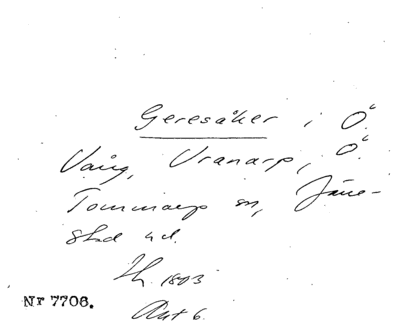 Geresåker i Ö.
Vång, Vranarp, Ö.
Tommarp sn, Järre-
stad hd.
Lh. 1803
Akt 6.
Nr 7706.